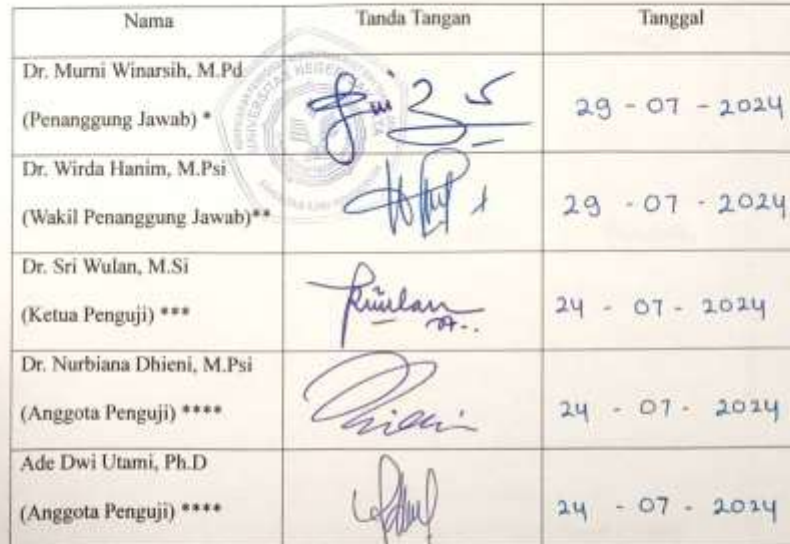 Nama Tanda Tangan Tanggal
Dr. Murni Winarsih, M.Pd
(Penanggung Jawab) * 29 - 07 - 2024
Dr. Wirda Hanim, M.Psi
(Wakil Penanggung Jawab)** 29 - 07 - 2024
Dr. Sri Wulan, M.Si
(Ketua Penguji) *** 24 - 07 - 2024
Dr. Nurbiana Dhieni, M.Psi
(Anggota Penguji) **** 24 - 07 - 2024
Ade Dwi Utami, Ph.D
(Anggota Penguji) **** 24 - 07 - 2024